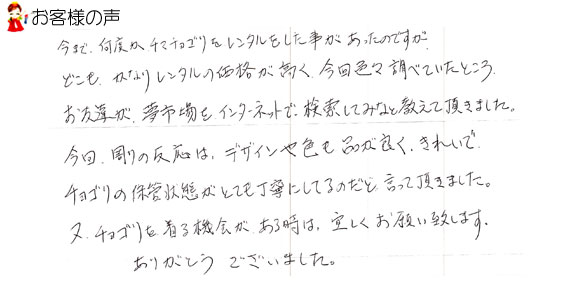 お客様の声
今まで、何度かチマチョゴリをレンタルをした事があったのですが、
どこも、かなりレンタルの価格が高く、今回色々調べていたところ、
お友達が、夢市場をインターネットで、検索してみなと教えて頂きました。
今回、周りの反応は、デザインや色も品が良く、きれいで
チョゴリの保管状態がとても丁寧にしてるのだと言って頂きました。
又、チョゴリを着る機会がある時は、宜しくお願い致します。
ありがとうございました。